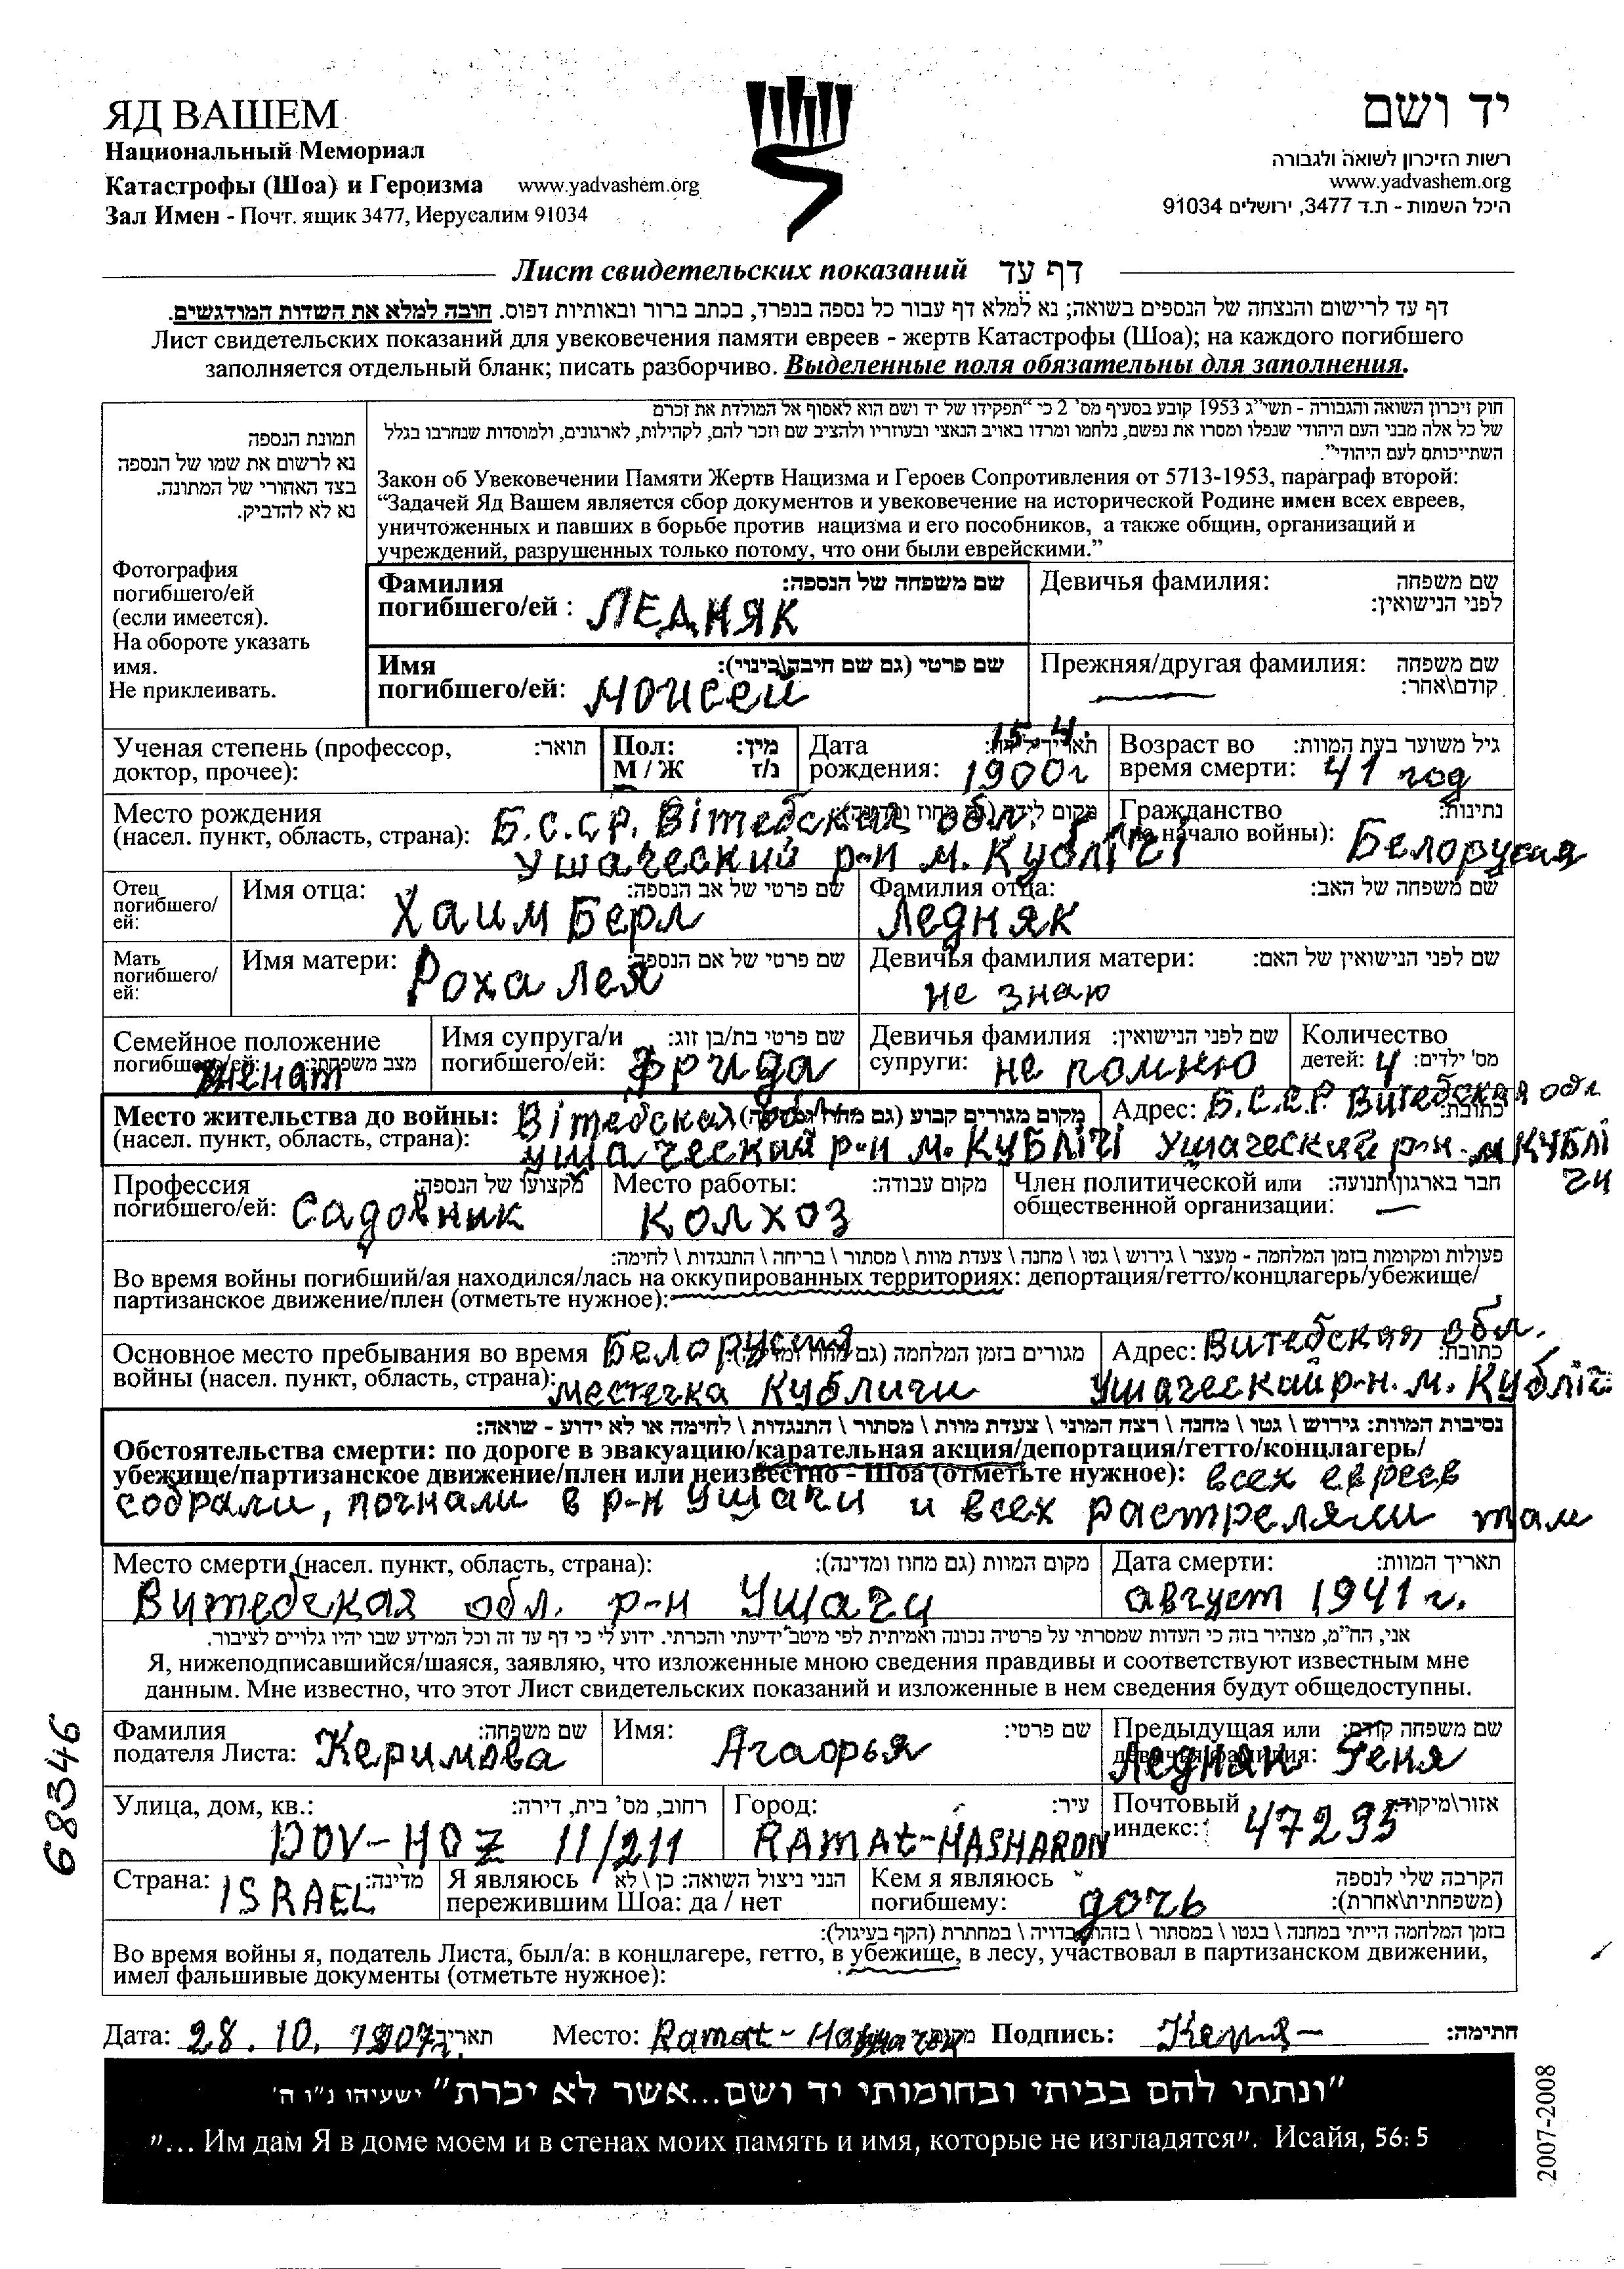 ЯД ВАШЕМ
Национальный Мемориал
Катастрофы (Шоа) и Героизма www.yadvashem.org
Зал Имен - Почт. ящик 3477, Иерусалим 91034
יד ושם
רשות הזיכרון לשואה ולגבורה
www.yadvashem.org
היכל השמות - ת.ד 3477, ירושלים 91034
Лист свидетельских показаний דף עד
דף עד לרישום והנצחה של הנספים בשואה; נא למלא דף עבור כל נספה בנפרד, בכתב ברור ובאותיות דפוס. חובה למלא את השדות המודגשים.
Лист свидетельских показаний для увековечения памяти евреев - жертв Катастрофы (Шоа); на каждого погибшего
заполняется отдельный бланк; писать разборчиво. Выделенные поля обязательны для заполнения.
תמונת הנספה
נא לרשום את שמו של הנספה
בצד האחורי של המתונה.
נא לא להדביק.
Фотография
погибшего/ей
(если имеется).
На обороте указать
имя.
Не приклеивать.
חוק זיכרון השואה והגבורה - תשי"ג 1953 קובע בסעיף מס' 2 כי "תפקידו של יד ושם הוא לאסוף אל המולדת את זכרם
של כל אלה מבני העם היהודי שנפלו ומסרו את נפשם, נלחמו ומרדו באויב הנאצי ובעוזריו ולהציב שם וזכר להם, לקהילות, לארגונים, ולמוסדות שנחרבו בגלל
השתייכותם לעם היהודי".
Закон об Увековечении Памяти Жертв Нацизма и Героев Сопротивления от 5713-1953, параграф второй:
“Задачей Яд Вашем является сбор документов и увековечение на исторической Родине имен всех евреев,
уничтоженных и павших в борьбе против нацизма и его пособников, а также общин, организаций и
учреждений, разрушенных только потому, что они были еврейскими.”
Фамилия שם משפחה של הנספה:
погибшего/ей : ЛЕДНЯК
Девичья фамилия: שם משפחה
לפני הנישואין:
Имя שם פרטי (גם שם חיבה\כינוי):
погибшего/ей: Моисей
Прежняя/другая фамилия: שם משפחה
קודם\אחר:
Ученая степень (профессор, תואר:
доктор, прочее):
Пол: מין:
М / Ж ז/נ
Дата 15.4.
рождения: 1900г
Возраст во גיל משוער בעת המוות:
время смерти: 41 год
Место рождения Б.С.СР. Вітебская обл.
(насел. пункт, область, страна): Ушаческий р-н м. Кублічі
Гражданство נתינות:
(на начало войны): Белорусия
Отец
погибшего/
ей:
Имя отца: שם פרטי של אב הנספה:
Хаим Берл
Фамилия отца: שם משפחה של האב:
Ледняк
Мать
погибшего/
ей:
Имя матери: שם פרטי של אם הנספה:
Роха Лея
Девичья фамилия матери: שם לפני הנישואין של האם:
не знаю
Семейное положение
погибшего/ей: מצב משפחתי:
Женат
Имя супруга/и שם פרטי בת/בן זוג:
погибшего/ей: Фрида
Девичья фамилия שם לפני הנישואין:
супруги: не помню
Количество
детей: 4 מס' ילדים:
Место жительства до войны: Вітебская обл
(насел. пункт, область, страна): Ушаческий р-н м. Кублічі
Адрес: Б.С.С.Р. Витебская обл
Ушаческий р-н. м КУБЛІ
чи
Профессия מקצועו של הנספה:
погибшего/ей: Садовник
Место работы: מקום עבודה:
Колхоз
Член политической или חבר בארגון\תנועה:
общественной организации: —
פעולות ומקומות בזמן המלחמה - מעצר \ גירוש \ גטו \ מחנה \ צעדת מוות \ מסתור \ בריחה \ התנגדות \ לחימה:
Во время войны погибший/ая находился/лась на оккупированных территориях: депортация/гетто/концлагерь/убежище/
партизанское движение/плен (отметьте нужное):
Основное место пребывания во время Белорусия
войны (насел. пункт, область, страна): местечка Кубличи
Адрес: Витебская обл.
Ушаческий р-н. м. Кубліч
נסיבות המוות: גירוש \ גטו \ מחנה \ רצח המוני \ צעדת מוות \ מסתור \ התנגדות \ לחימה או לא ידוע - שואה:
Обстоятельства смерти: по дороге в эвакуацию/карательная акция/депортация/гетто/концлагерь/
убежище/партизанское движение/плен или неизвестно - Шоа (отметьте нужное): всех евреев
собрали, погнали в р-н Ушачи и всех растреляли там
Место смерти (насел. пункт, область, страна): מקום המוות (גם מחוז ומדינה):
Витебская обл. р-н Ушачи
Дата смерти: תאריך המוות:
август 1941 г.
אני, הח"מ, מצהיר בזה כי העדות שמסרתי על פרטיה נכונה ואמיתית לפי מיטב ידיעתי והכרתי. ידוע לי כי דף עד זה וכל המידע שבו יהיו גלויים לציבור.
Я, нижеподписавшийся/шаяся, заявляю, что изложенные мною сведения правдивы и соответствуют известным мне
данным. Мне известно, что этот Лист свидетельских показаний и изложенные в нем сведения будут общедоступны.
Фамилия שם משפחה:
подателя Листа: Керимова
Имя: שם פרטי:
Агаорья
Предыдущая или שם משפחה קודם:
девичья фамилия: Ледняк Геня
Улица, дом, кв.: רחוב, מס' בית, דירה:
DOV-HOZ 11/211
Город: עיר:
RAMAt-HASHARON
Почтовый אזור\מיקוד:
индекс: 47295
Страна: ISRAEL מדינה:
Я являюсь הנני ניצול השואה: כן \ לא
пережившим Шоа: да / нет
Кем я являюсь הקרבה שלי לנספה
погибшему: дочь (משפחתית\אחרת):
בזמן המלחמה הייתי במחנה \ בגטו \ במסתור \ בזהות בדויה \ במחתרת (הקף בעיגול):
Во время войны я, податель Листа, был/а: в концлагере, гетто, в убежище, в лесу, участвовал в партизанском движении,
имел фальшивые документы (отметьте нужное):
Дата: 28. 10. 1907г. תאריך Место: Ramat- Подпись: חתימה:
"ונתתי להם בביתי ובחומותי יד ושם...אשר לא יכרת" ישעיהו נ"ו ה'
"... Им дам Я в доме моем и в стенах моих память и имя, которые не изгладятся". Исайя, 56: 5
68346
2007-2008